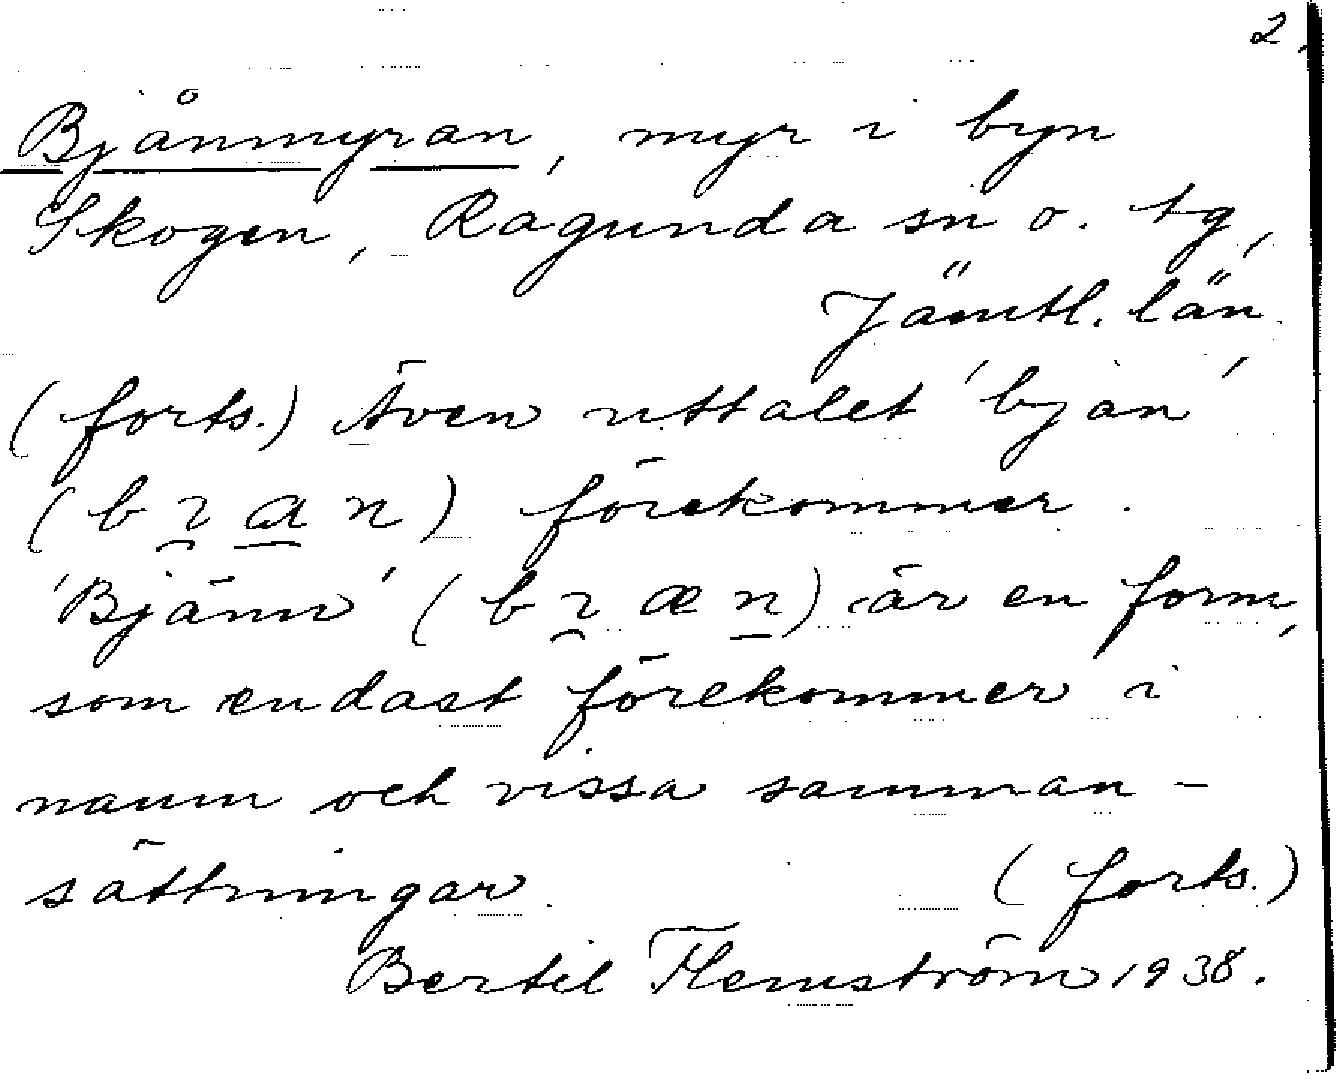 2.
Bjånmyran, myr i byn
Skogen, Ragunda sn o. tg,
Jämtl. län.
(forts.) Även uttalet 'bjan'
(b ɿ̯ a̲ n) förekommer.
'Bjänn' (b ɿ̯ æ n̲) är en form,
som endast förekommer i
namn och vissa samman-
sättningar. (forts.)
Bertil Flemström 1938.